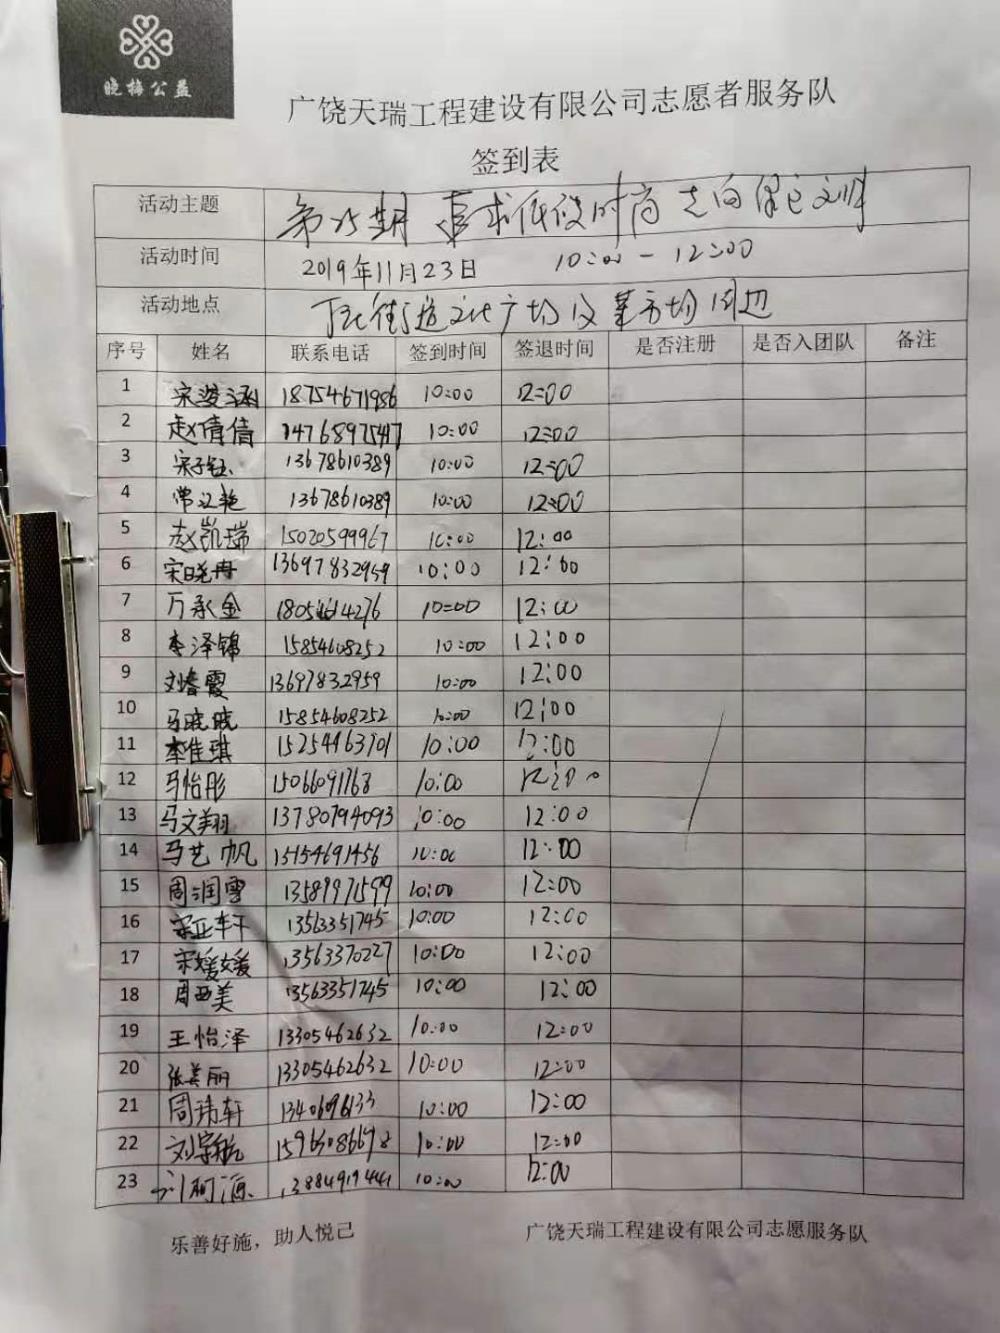 晓梅公益
广饶天瑞工程建设有限公司志愿者服务队
签到表
活动主题 第25期 追求低俭时尚 走向绿色文明
活动时间 2019年11月23日 10:00-12:00
活动地点 街道文化广场及菜市场周边
序号 姓名 联系电话 签到时间 签退时间 是否注册 是否入团队 备注
1 宋浚涵 18754671986 10:00 12:00
2 赵倩倩 10:00 12:00
3 宋子钰 13678610389 10:00 12:00
4 常江艳 13678610389 10:00 12:00
5 赵凯瑞 15020599967 10:00 12:00
6 宋晓冉 13697832959 10:00 12:00
7 万承金 10:00 12:00
8 李泽锦 15854608252 10:00 12:00
9 刘春霞 13697832959 10:00 12:00
10 马晓晓 15854608252 10:00 12:00
11 李佳琪 15254463701 10:00 12:00
12 马怡彤 15066091768 10:00 12:00
13 马文翔 13780794093 10:00 12:00
14 马艺帆 15154691456 10:00 12:00
15 周润雪 13589971599 10:00 12:00
16 宋正轩 13563351745 10:00 12:00
17 宋媛媛 13563370227 10:00 12:00
18 周西美 13563351745 10:00 12:00
19 王怡泽 13305462632 10:00 12:00
20 张美丽 13305462632 10:00 12:00
21 周玮轩 10:00 12:00
22 刘宇航 10:00 12:00
23 刘柯源 13884919441 10:00 12:00
乐善好施，助人悦己 广饶天瑞工程建设有限公司志愿服务队